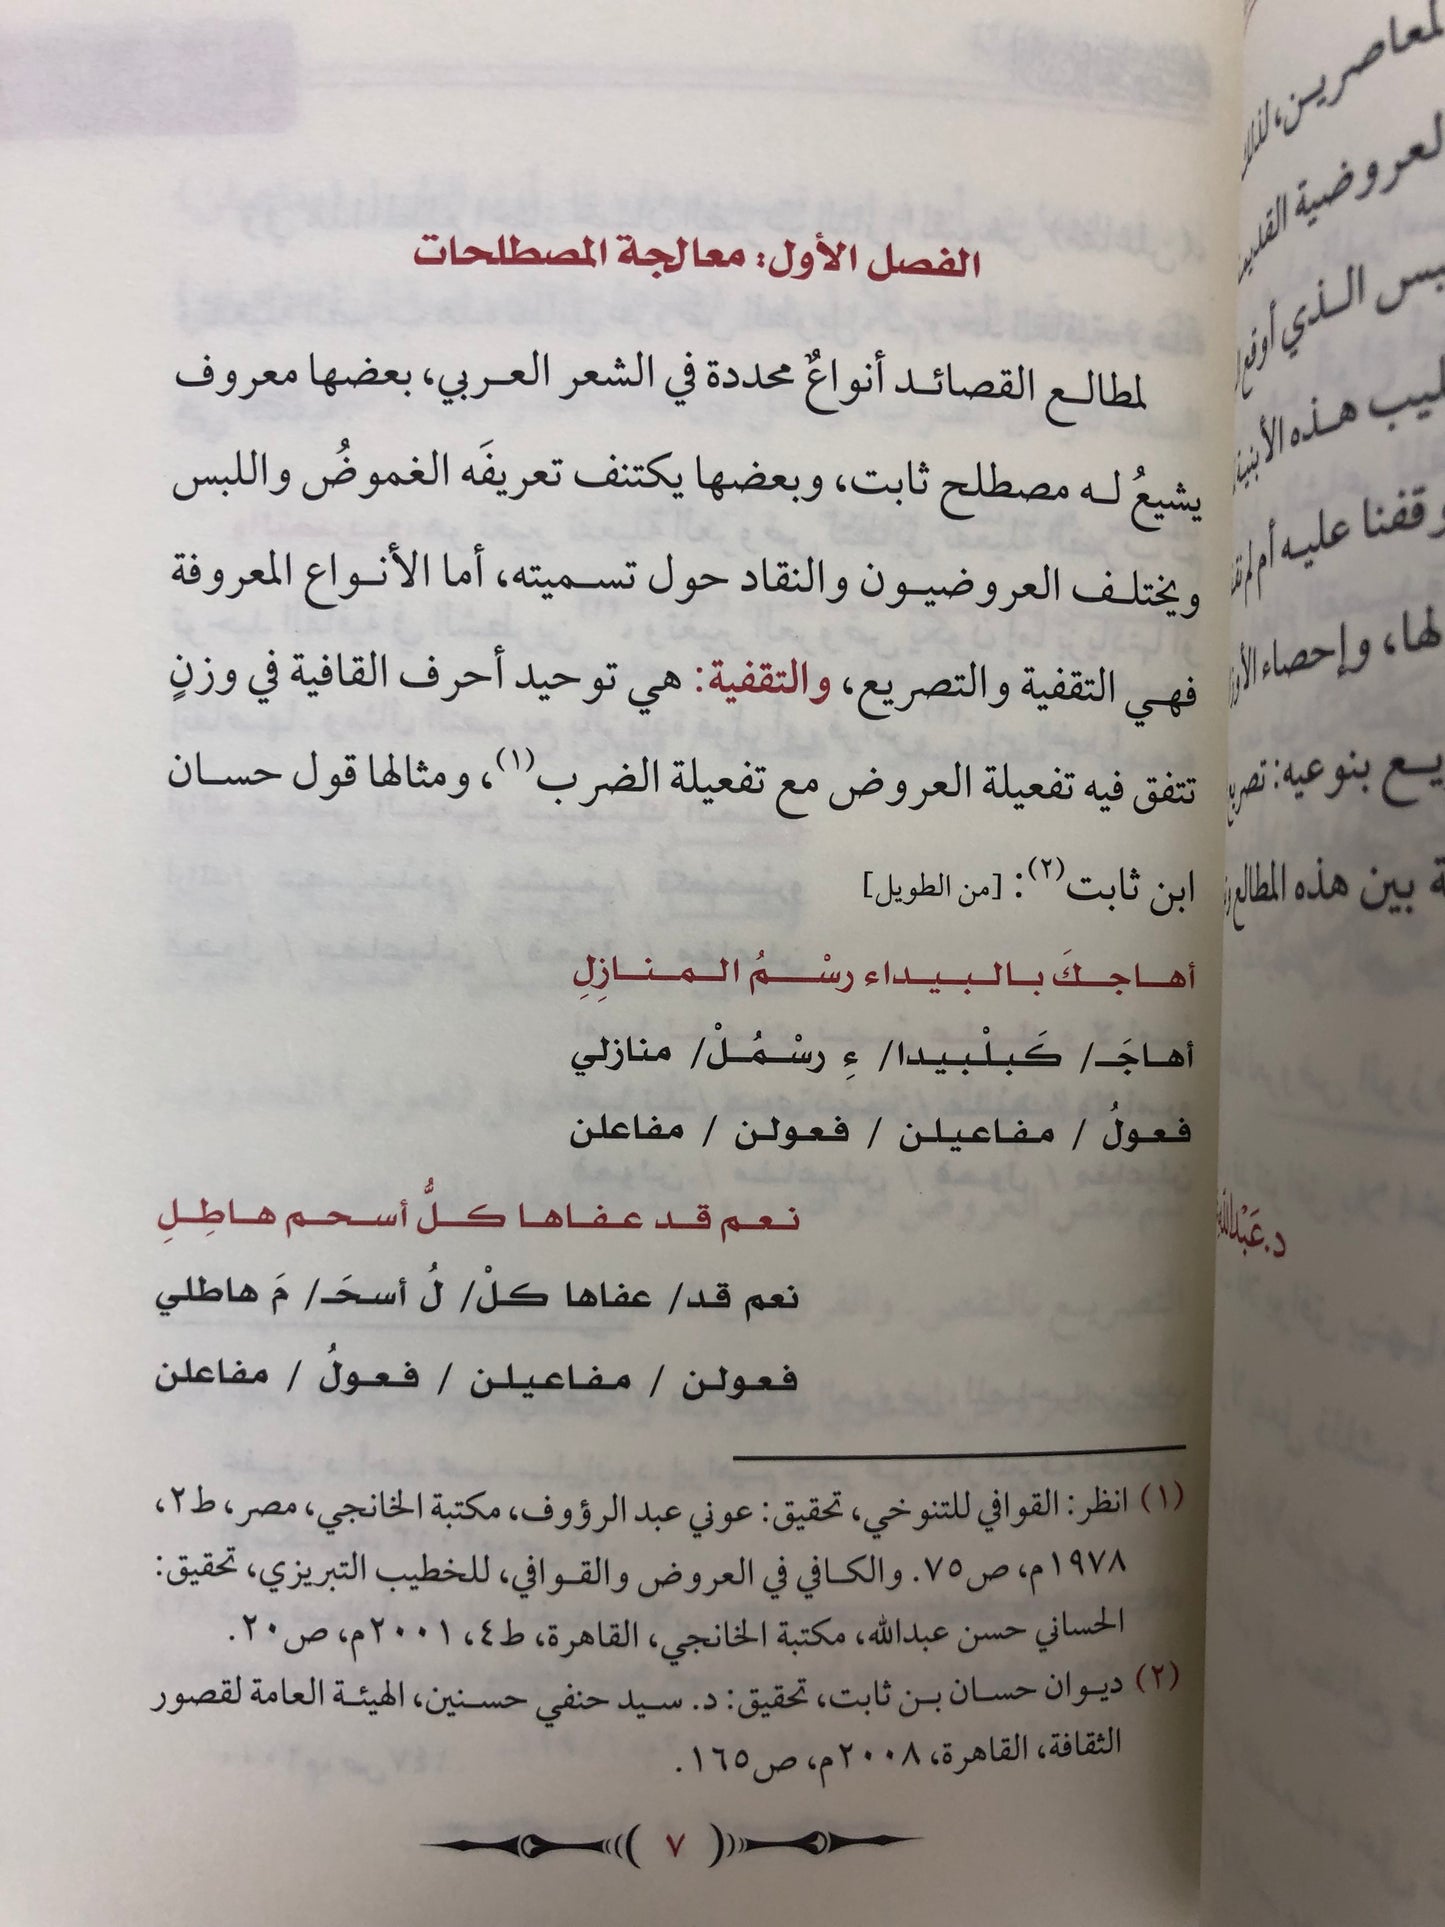 الفصل الأول: معالجة المصطلحات
لمطالع القصائد أنواعٌ محددة في الشعر العربي، بعضها معروف
يشيعُ له مصطلح ثابت، وبعضها يكتنف تعريفَه الغموضُ واللبس
ويختلف العروضيون والنقاد حول تسميته، أما الأنواع المعروفة
فهي التقفية والتصريع، والتقفية: هي توحيد أحرف القافية في وزنٍ
تتفق فيه تفعيلة العروض مع تفعيلة الضرب(١)، ومثالها قول حسان
ابن ثابت(٢): [من الطويل]
أهاجكَ بالبيداء رسْمُ المنازِلِ
أهاجَـ/ كَبلْبيدا/ ءِ رسْمُلْ/ منازلي
فعولُ / مفاعيلن / فعولن / مفاعلن
نعم قد عفاها كلُّ أسحم هاطِلِ
نعم قد/ عفاها كلْ/ لُ أسحَـ/ مَ هاطلي
فعولن / مفاعيلن / فعولُ / مفاعلن
(١) انظر: القوافي للتنوخي، تحقيق: عوني عبد الرؤوف، مكتبة الخانجي، مصر، ط٢،
١٩٧٨م، ص٧٥. والكافي في العروض والقوافي، للخطيب التبريزي، تحقيق:
الحساني حسن عبدالله، مكتبة الخانجي، القاهرة، ط٤، ٢٠٠١م، ص٢٠.
(٢) ديوان حسان بن ثابت، تحقيق: د. سيد حنفي حسنين، الهيئة العامة لقصور
الثقافة، القاهرة، ٢٠٠٨م، ص١٦٥.
٧
لمعاصرين،
لعروضية
الذي أوقع
هذه
وقفنا عليه أم
لها، وإحصاء
بنوعيه:
بين هذه المطالع
د.